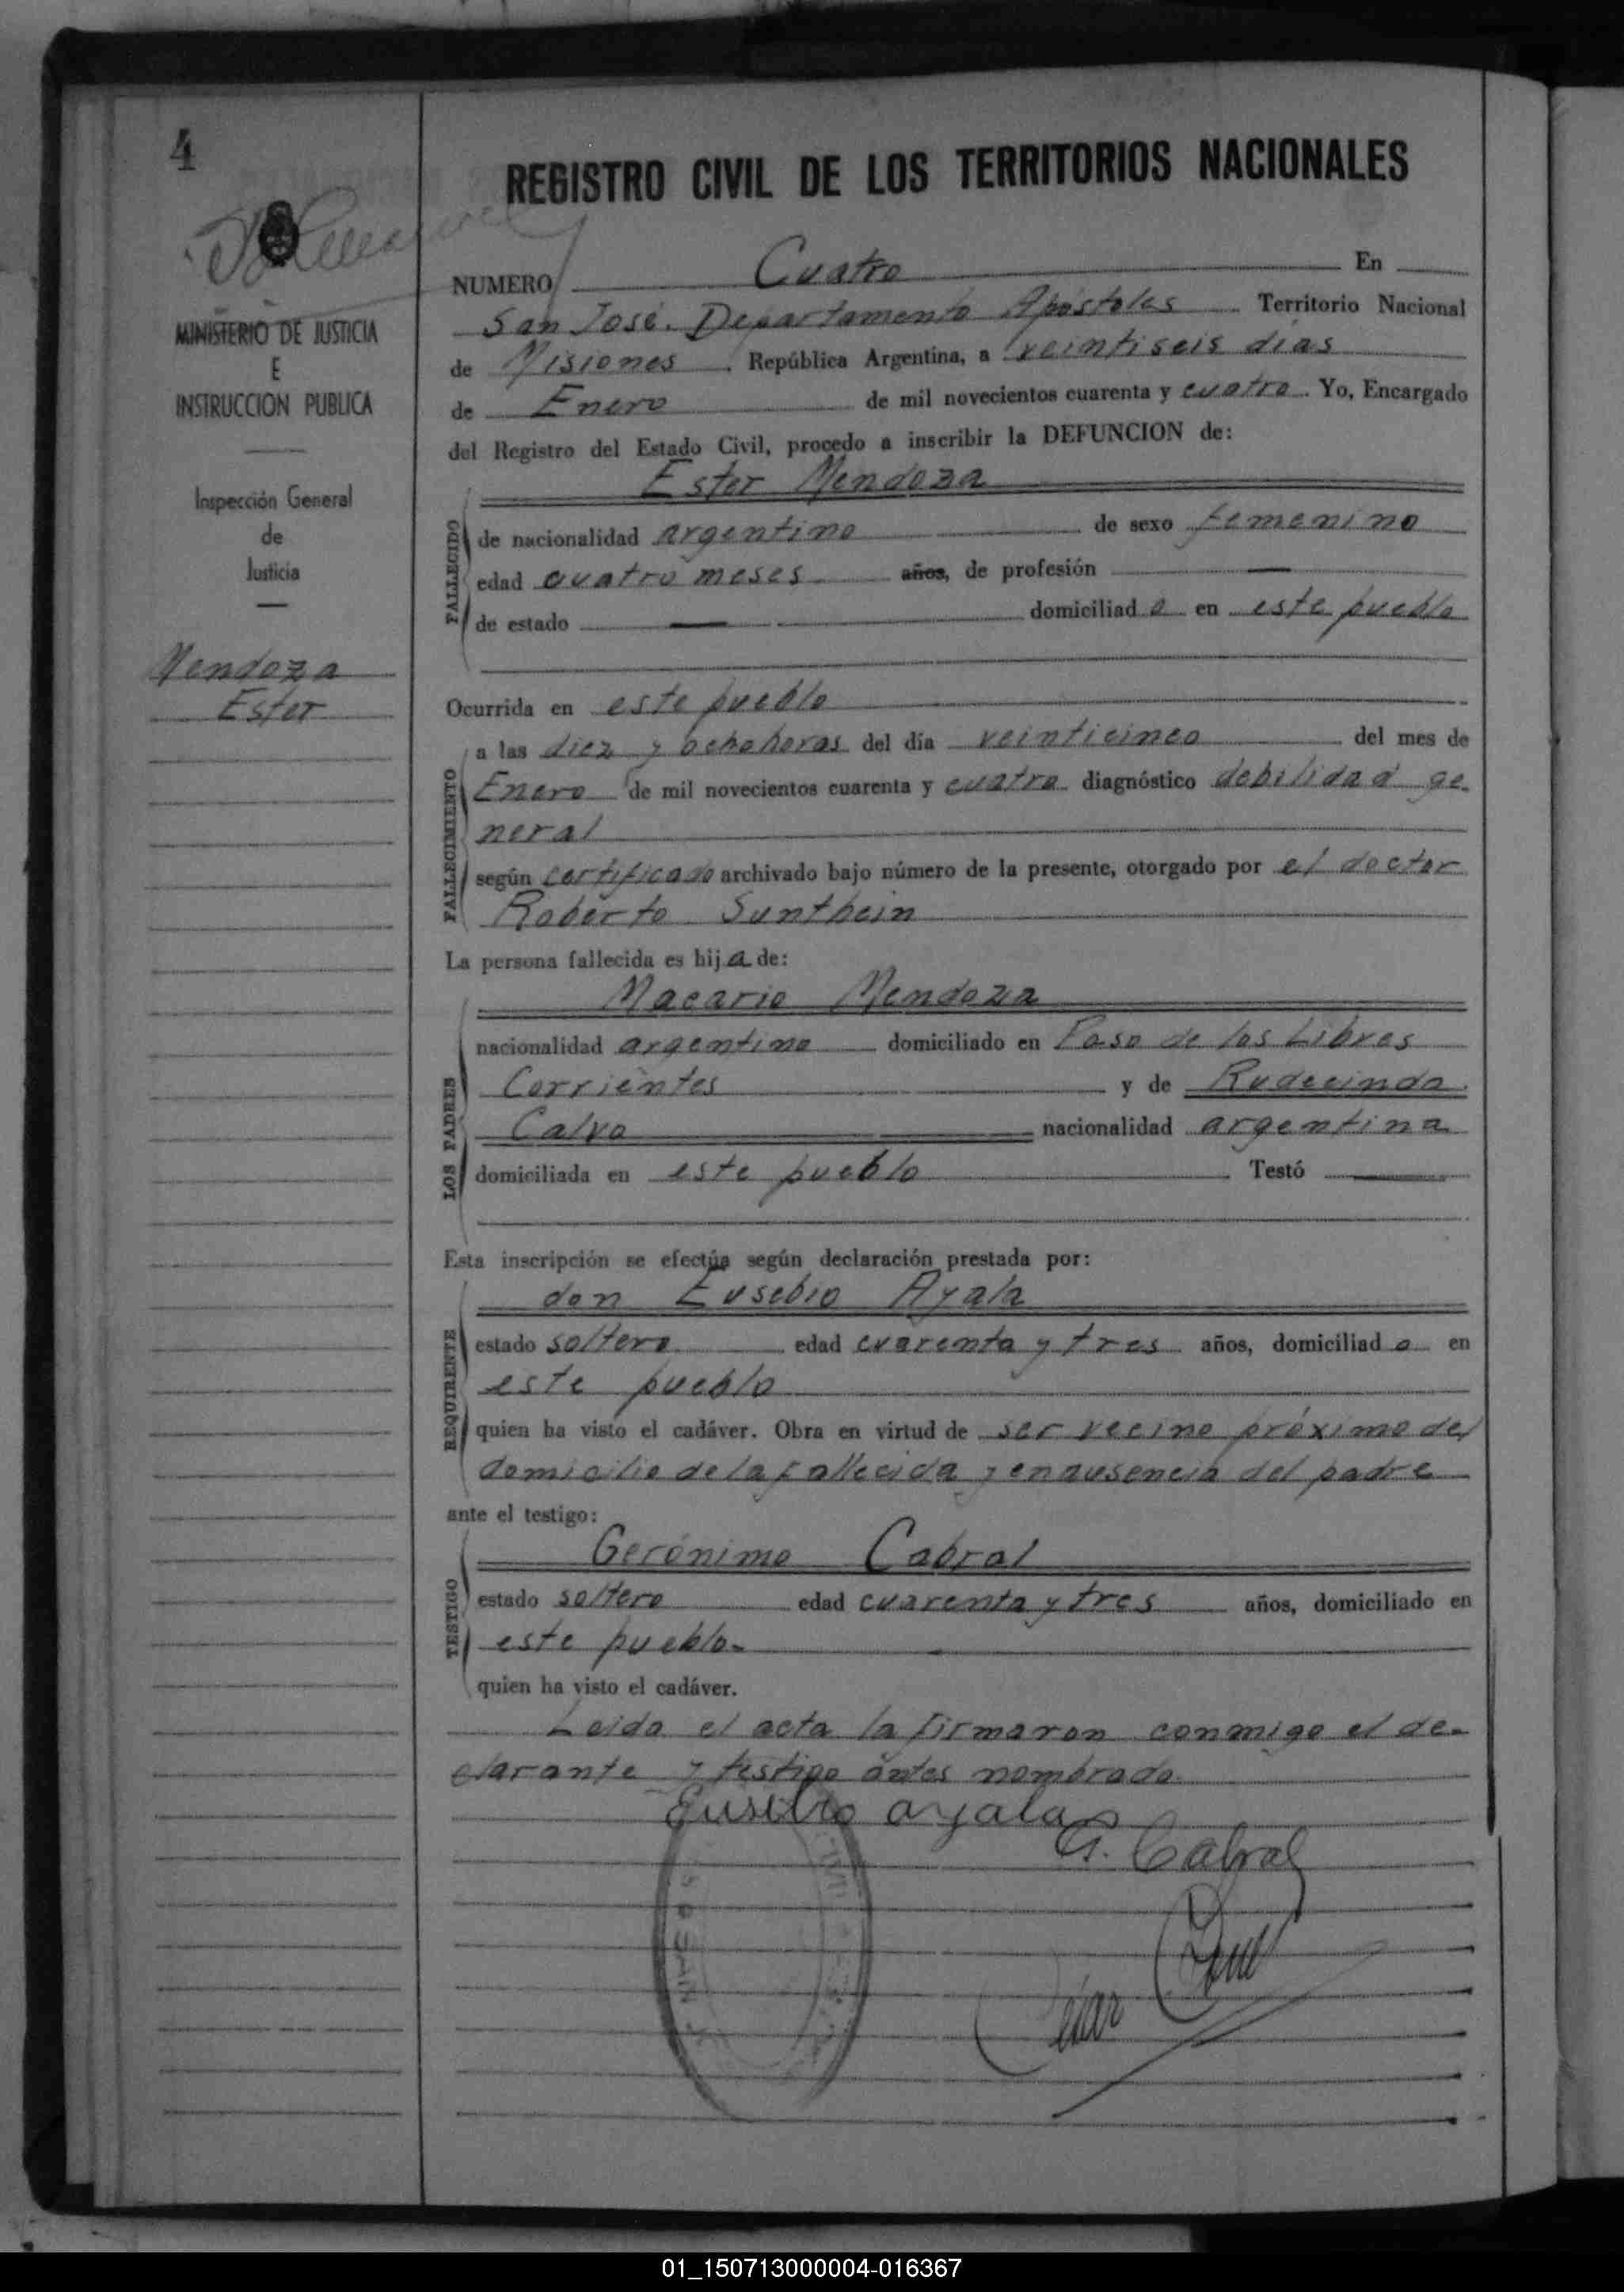 4
REGISTRO CIVIL DE LOS TERRITORIOS NACIONALES
MINISTERIO DE JUSTICIA
E
INSTRUCCION PUBLICA
Inspección General
de
Justicia
Mendoza
Ester
NUMERO Cuatro En
San José. Departamento Apóstoles Territorio Nacional
de Misiones. República Argentina, a veintiseis dias
de Enero de mil novecientos cuarenta y cuatro. Yo, Encargado
del Registro del Estado Civil, procedo a inscribir la DEFUNCION de:
Ester Mendoza
FALLECIDO
de nacionalidad argentino de sexo femenino
edad cuatro meses años, de profesión —
de estado — domiciliado en este pueblo
Ocurrida en este pueblo
FALLECIMIENTO
a las diez y ocho horas del día veinticinco del mes de
Enero de mil novecientos cuarenta y cuatro diagnóstico debilidad ge-
neral
según certificado archivado bajo número de la presente, otorgado por el doctor
Roberto Sunthein
La persona fallecida es hija de:
Macario Mendoza
LOS PADRES
nacionalidad argentino domiciliado en Paso de los Libres
Corrientes y de Rudecinda
Calvo nacionalidad argentina
domiciliada en este pueblo Testó —
Esta inscripción se efectúa según declaración prestada por:
don Eusebio Ayala
REQUIRENTE
estado soltero edad cuarenta y tres años, domiciliado en
este pueblo
quien ha visto el cadáver. Obra en virtud de ser vecino próximo del
domicilio de la fallecida y en ausencia del padre
ante el testigo:
Gerónimo Cabral
TESTIGO
estado soltero edad cuarenta y tres años, domiciliado en
este pueblo.
quien ha visto el cadáver.
Leida el acta la firmaron conmigo el de-
clarante y testigo antes nombrado.
Eusebio ayala
G. Cabral
01_150713000004-016367